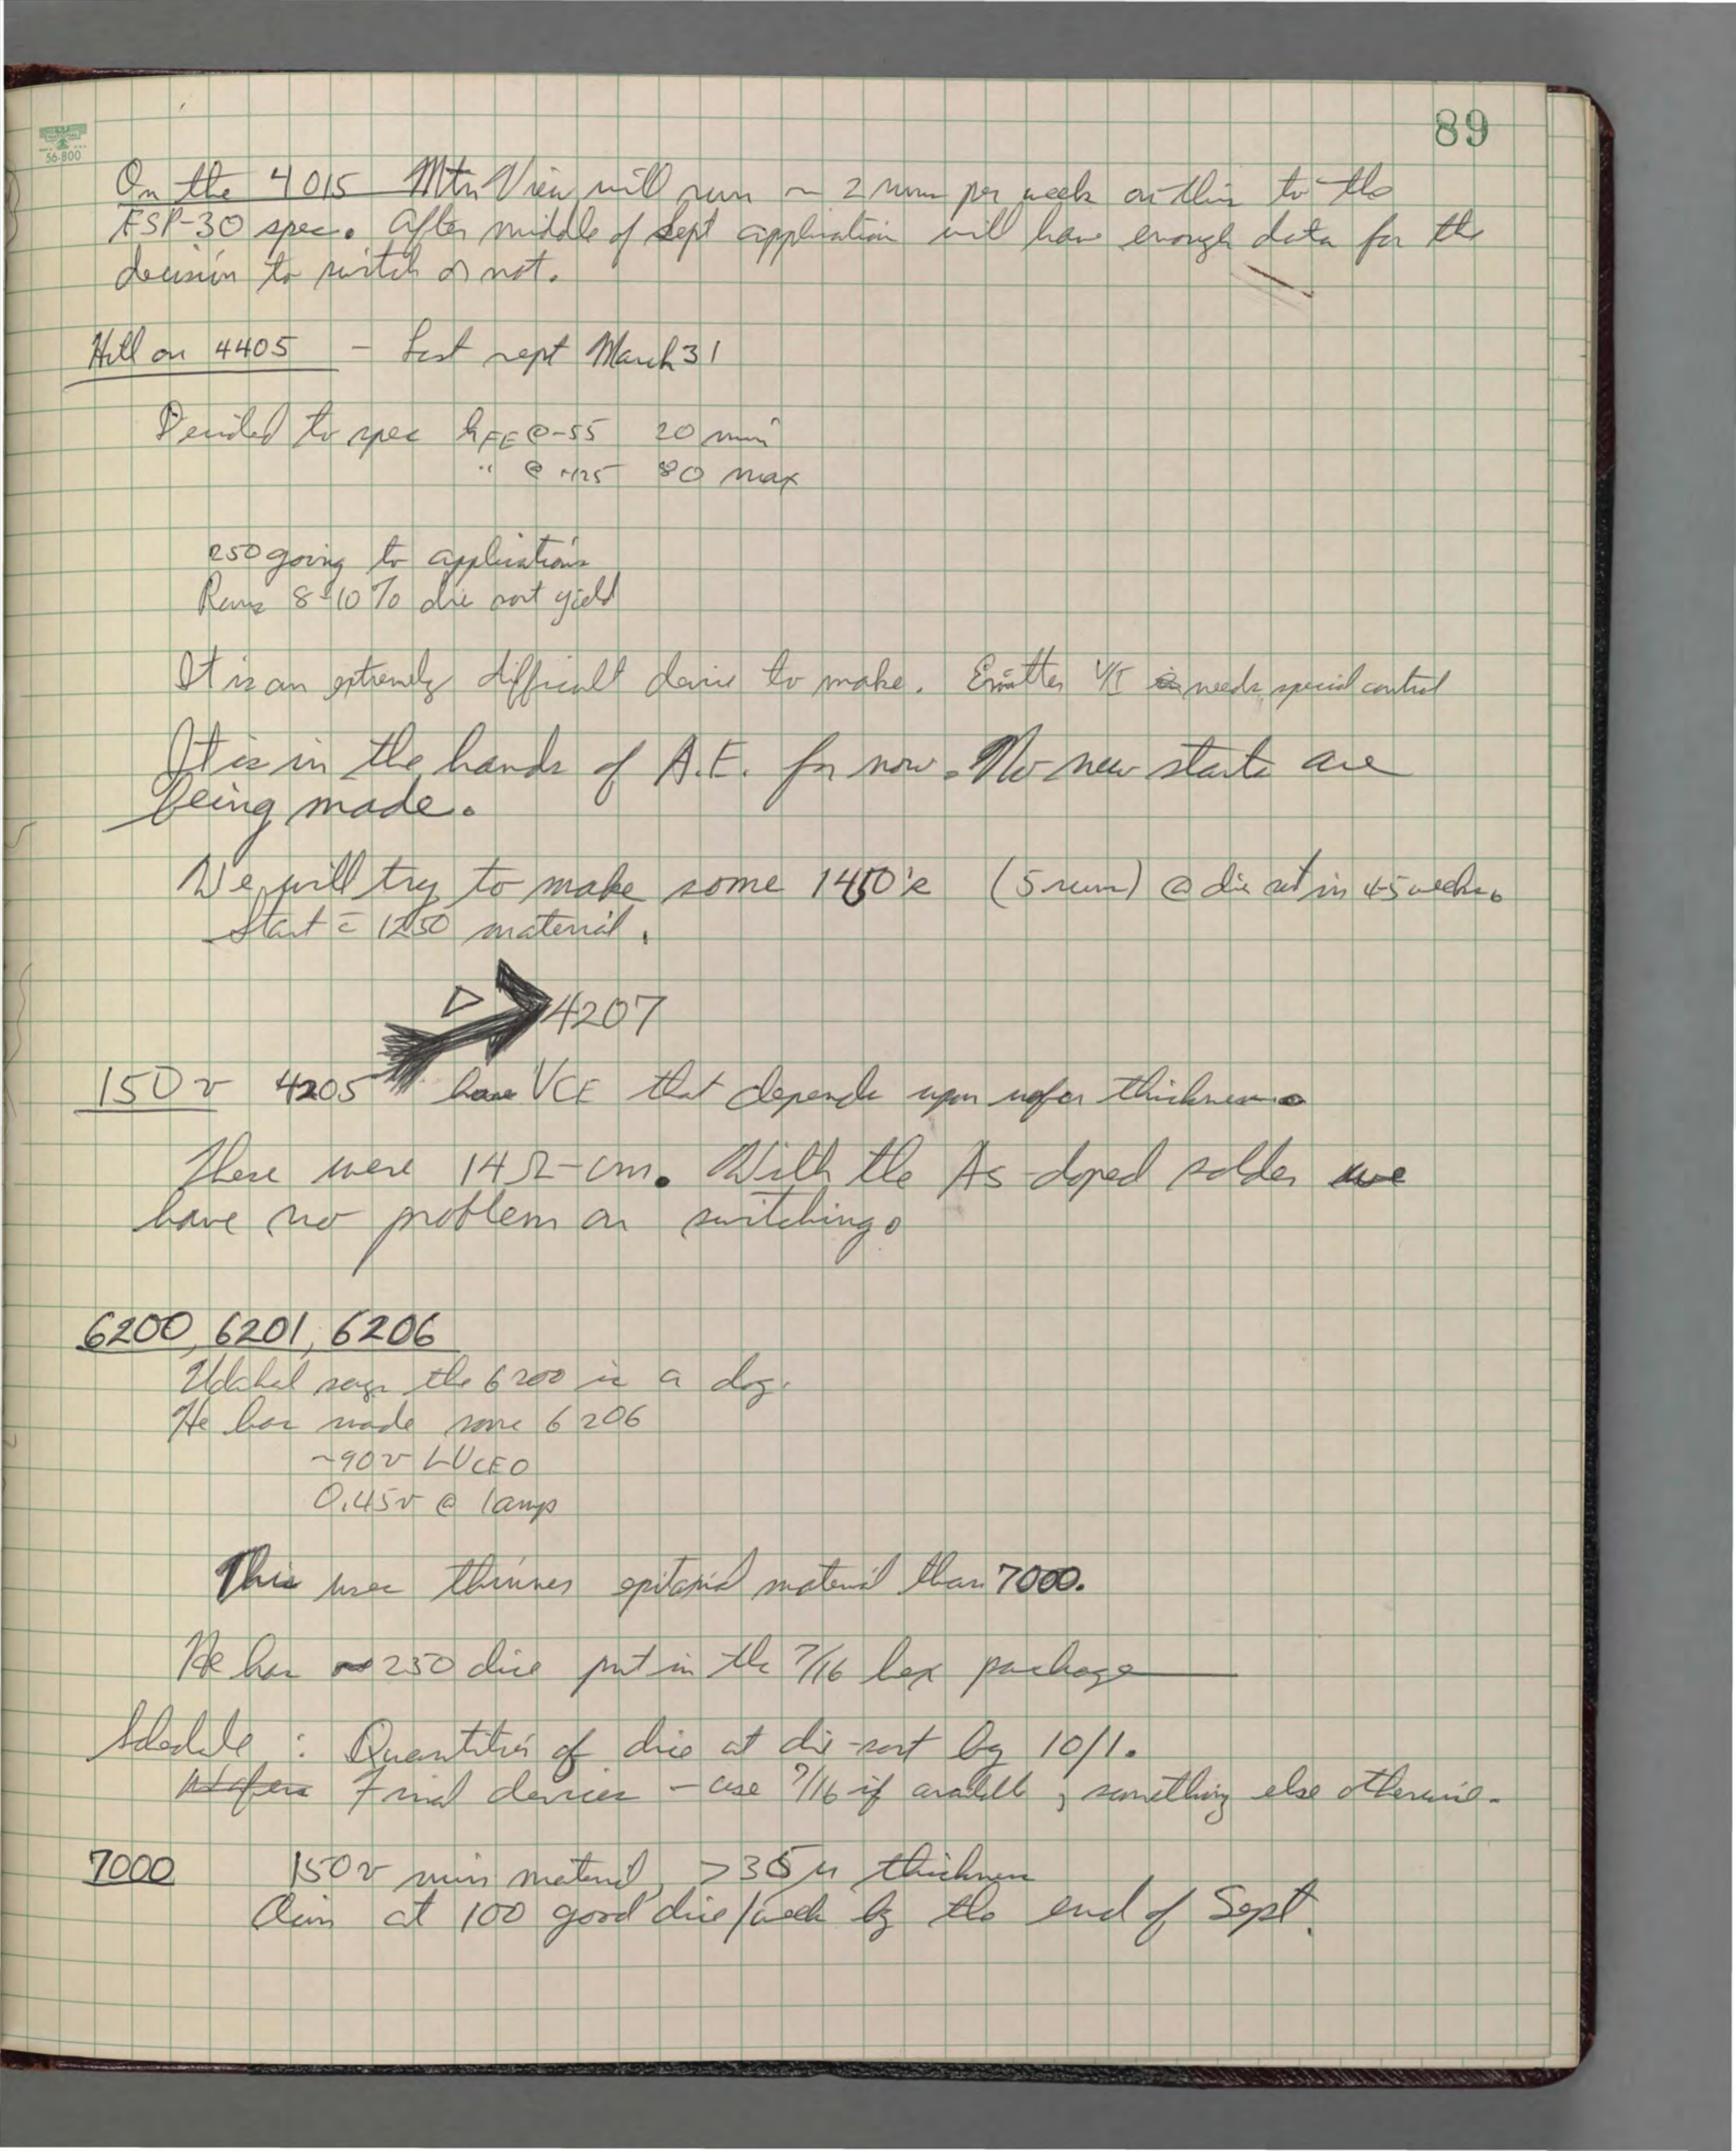 89
56-800
On the 4015 Mtn View will run ~ 2 runs per week on this to the
FSP-30 spec. After middle of Sept application will have enough data for the
decision to switch or not.
Hill on 4405 - Last rept March 31
Decided to spec hFE @ -55 20 min
" @ +125 80 max
250 going to applications
Runs 8-10% die sort yield
It is an extremely difficult device to make. Emitter V/I needs special control
It is in the hands of A.E. for now. No new starts are
being made.
We will try to make some 1450's (5 runs) @ die sort in 4-5 weeks.
Start c̄ 1250 material.
4207
150v 4205 have VCE that depends upon wafer thickness.
These were 14Ω-cm. With the As-doped solder we
have no problem on switching.
6200, 6201, 6206
says the 6200 is a dog.
He has made some 6206
~90v LVCEO
0.45v @ 1amp
This uses thinner epitaxial material than 7000.
He has ~250 dice put in the 7/16 hex package
Schedule : Quantities of dice at die-sort by 10/1.
Wafers Final devices - use 7/16 if available, something else otherwise.
7000 150v min material, >35μ thickness
Aim at 100 good dice/week by the end of Sept.